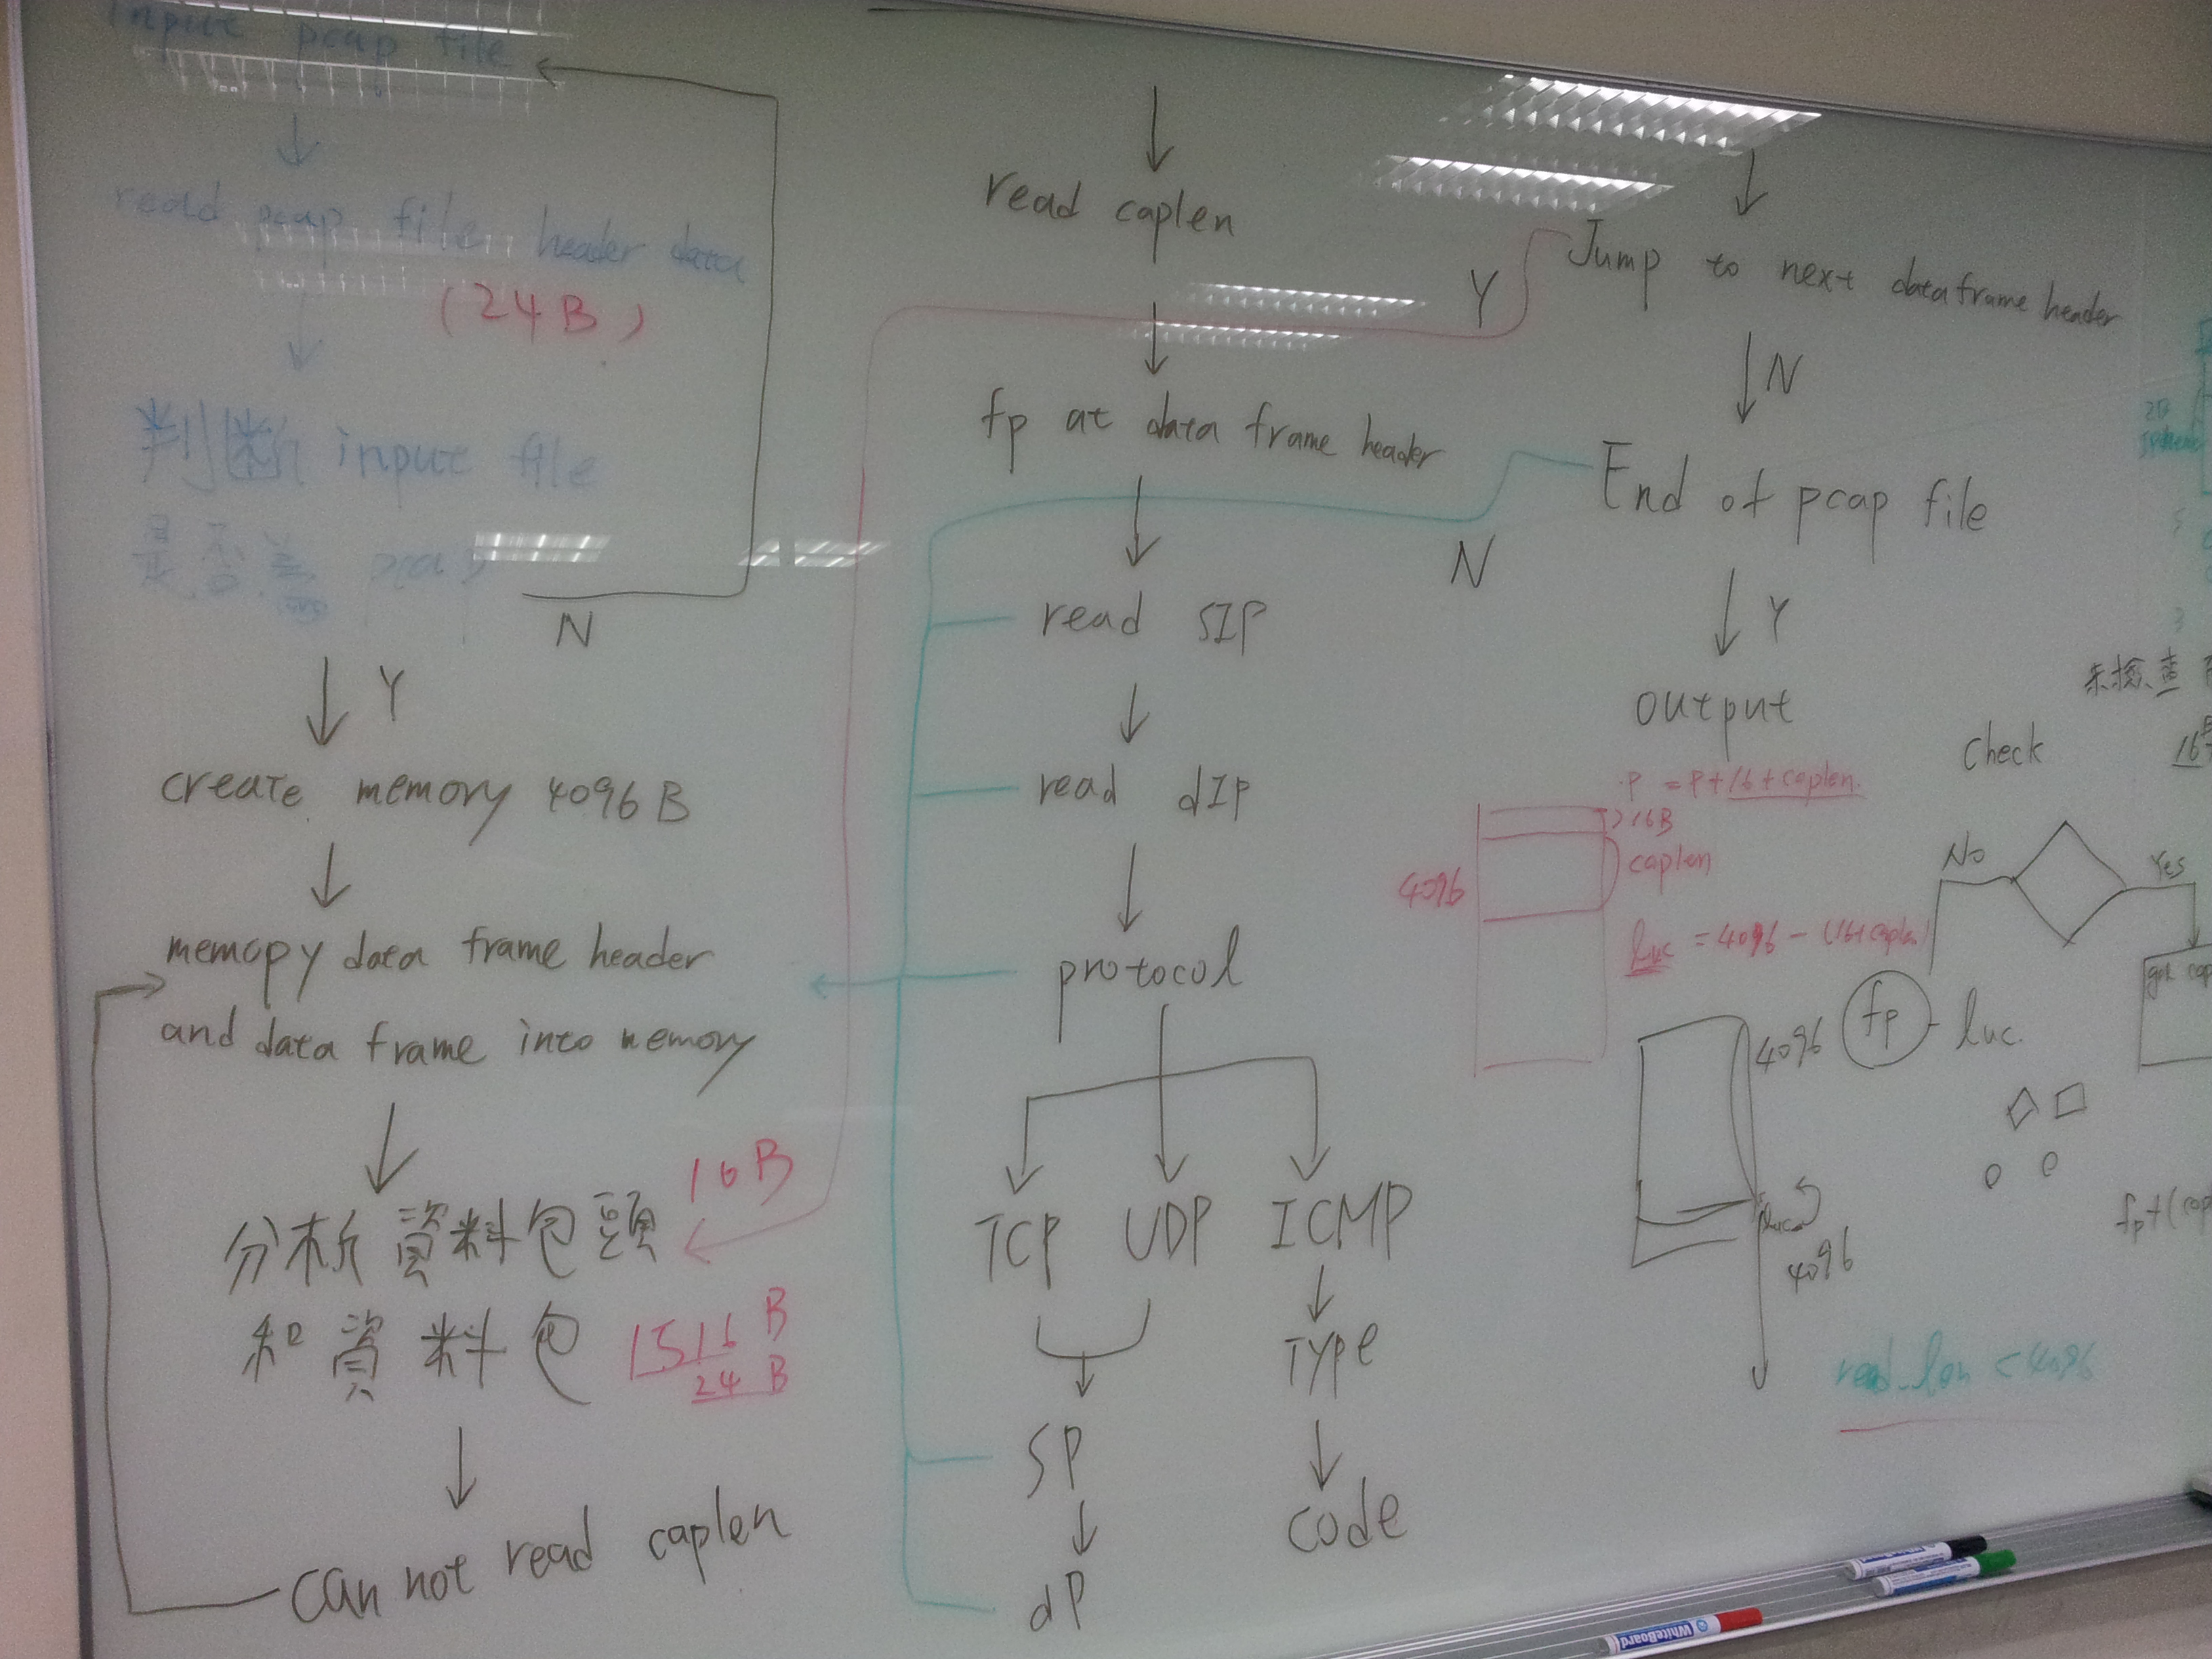 input pcap file
read pcap file header data
(24B)
判斷 input file
是否為 pcap
N
Y
create memory 4096B
memcpy data frame header
and data frame into memory
分析資料包頭 16B
和資料包 1516B
24B
can not read caplen
read caplen
fp at data frame header
read SIP
read dIP
protocol
TCP UDP ICMP
Type
SP
code
dP
Jump to next data frame header
Y
N
End of pcap file
N
Y
output
P = P+16+caplen
16B
caplen
4096
luc = 4096-(16+caplen)
4096
fp - luc
4096
read_len < 4096
未檢查
Check
No
Yes
get cap
fp+(cap
WhiteBoard